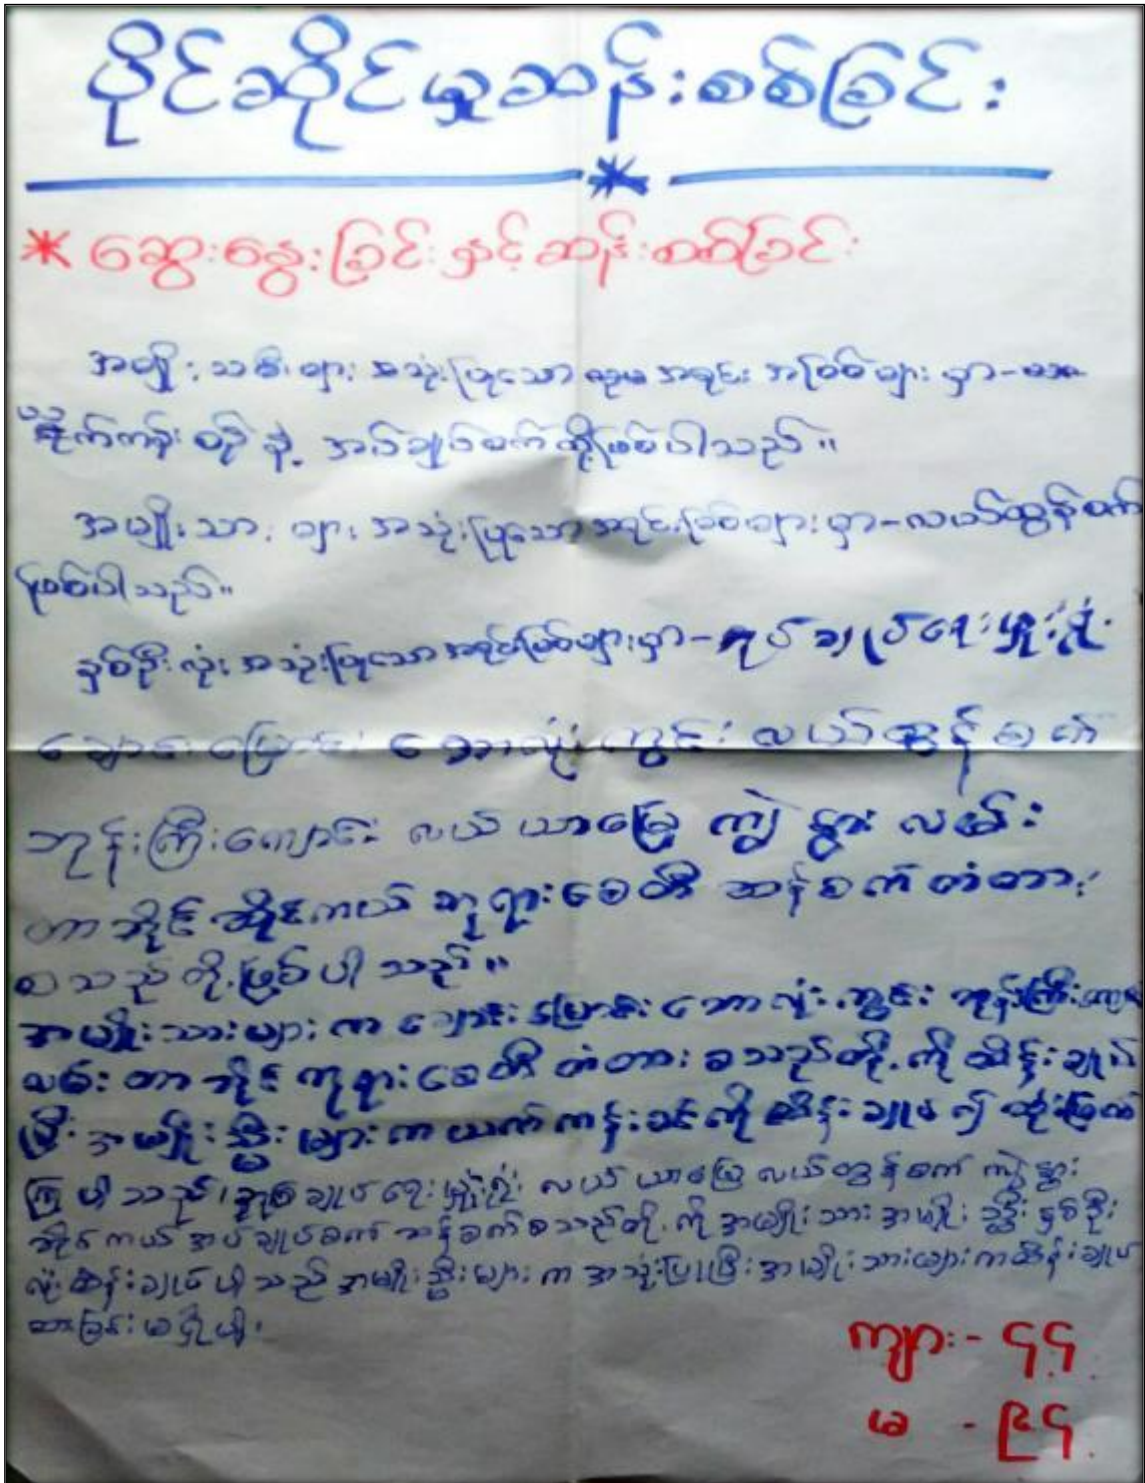 ပိုင်ဆိုင်မှုဆန်းစစ်ခြင်း
* ဆွေးနွေးခြင်းနှင့်ဆန်းစစ်ခြင်း
အမျိုးသမီးများ အသုံးပြုသော အရင်း အမြစ်များ မှာ-
ရက်ကန်းစင် နဲ့ အပ်ချုပ်စက်တို့ဖြစ်ပါသည်။
အမျိုးသားများ အသုံးပြုသောအရင်းမြစ်များမှာ-လယ်ထွန်စက်
ဖြစ်ပါသည်။
နှစ်ဦးလုံး အသုံးပြုသောအရင်းမြစ်များမှာ-အုပ်ချုပ်ရေးမှူးရုံး
ချောင်းမြောင်း ဘောလုံးကွင်း လယ်ထွန်စက်
ဘုန်းကြီးကျောင်း လယ်ယာမြေ ကျွဲနွား လမ်း
တာဘိုင် ဆိုင်ကယ် ဘုရားစေတီ ဆန်စက် တံတား
စသည်တို့ဖြစ်ပါသည်။
အမျိုးသားများက ချောင်းမြောင်း ဘောလုံးကွင်း ဘုန်းကြီး
လမ်း တာဘိုင် ဘုရားစေတီ တံတား စသည်တို့ကို ထိန်းချုပ်
ပြီး အမျိုးသ္မီးများက ယက်ကန်းစင်ကို ထိန်းချုပ်၍ ထုံးဖြတ်
ကြပါသည်၊ အုပ်ချုပ်ရေးမှူးရုံး လယ်ယာမြေ လယ်ထွန်စက် ကျွဲနွား
ဆိုင်ကယ် အပ်ချုပ်စက် ဆန်စက် စသည်တို့ကို အမျိုးသား အမျိုးသ္မီး နှစ်ဦး
လုံးထိန်းချုပ်ပါသည် အမျိုးသ္မီးများက အသုံးပြုပြီး အမျိုးသားများကထိန်းချုပ်
ထားခြင်းမရှိပါ။
ကျား - ၄၄
မ - ၉၄